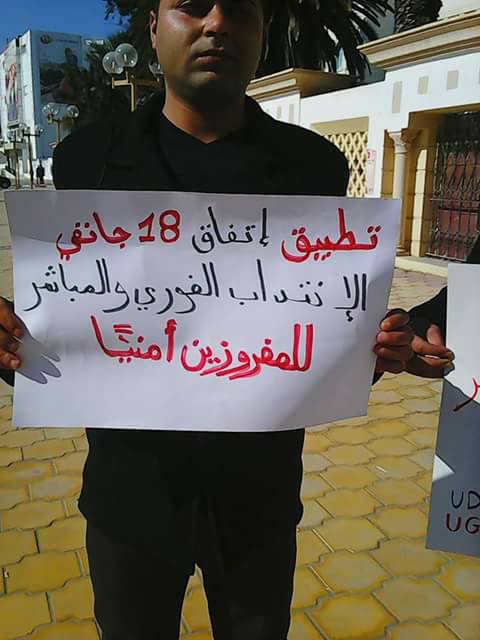 تطبيق إتفاق 18 جانفي
الإنتداب الفوري والمباشر
للمفروزين أمنيًا
UD
UG